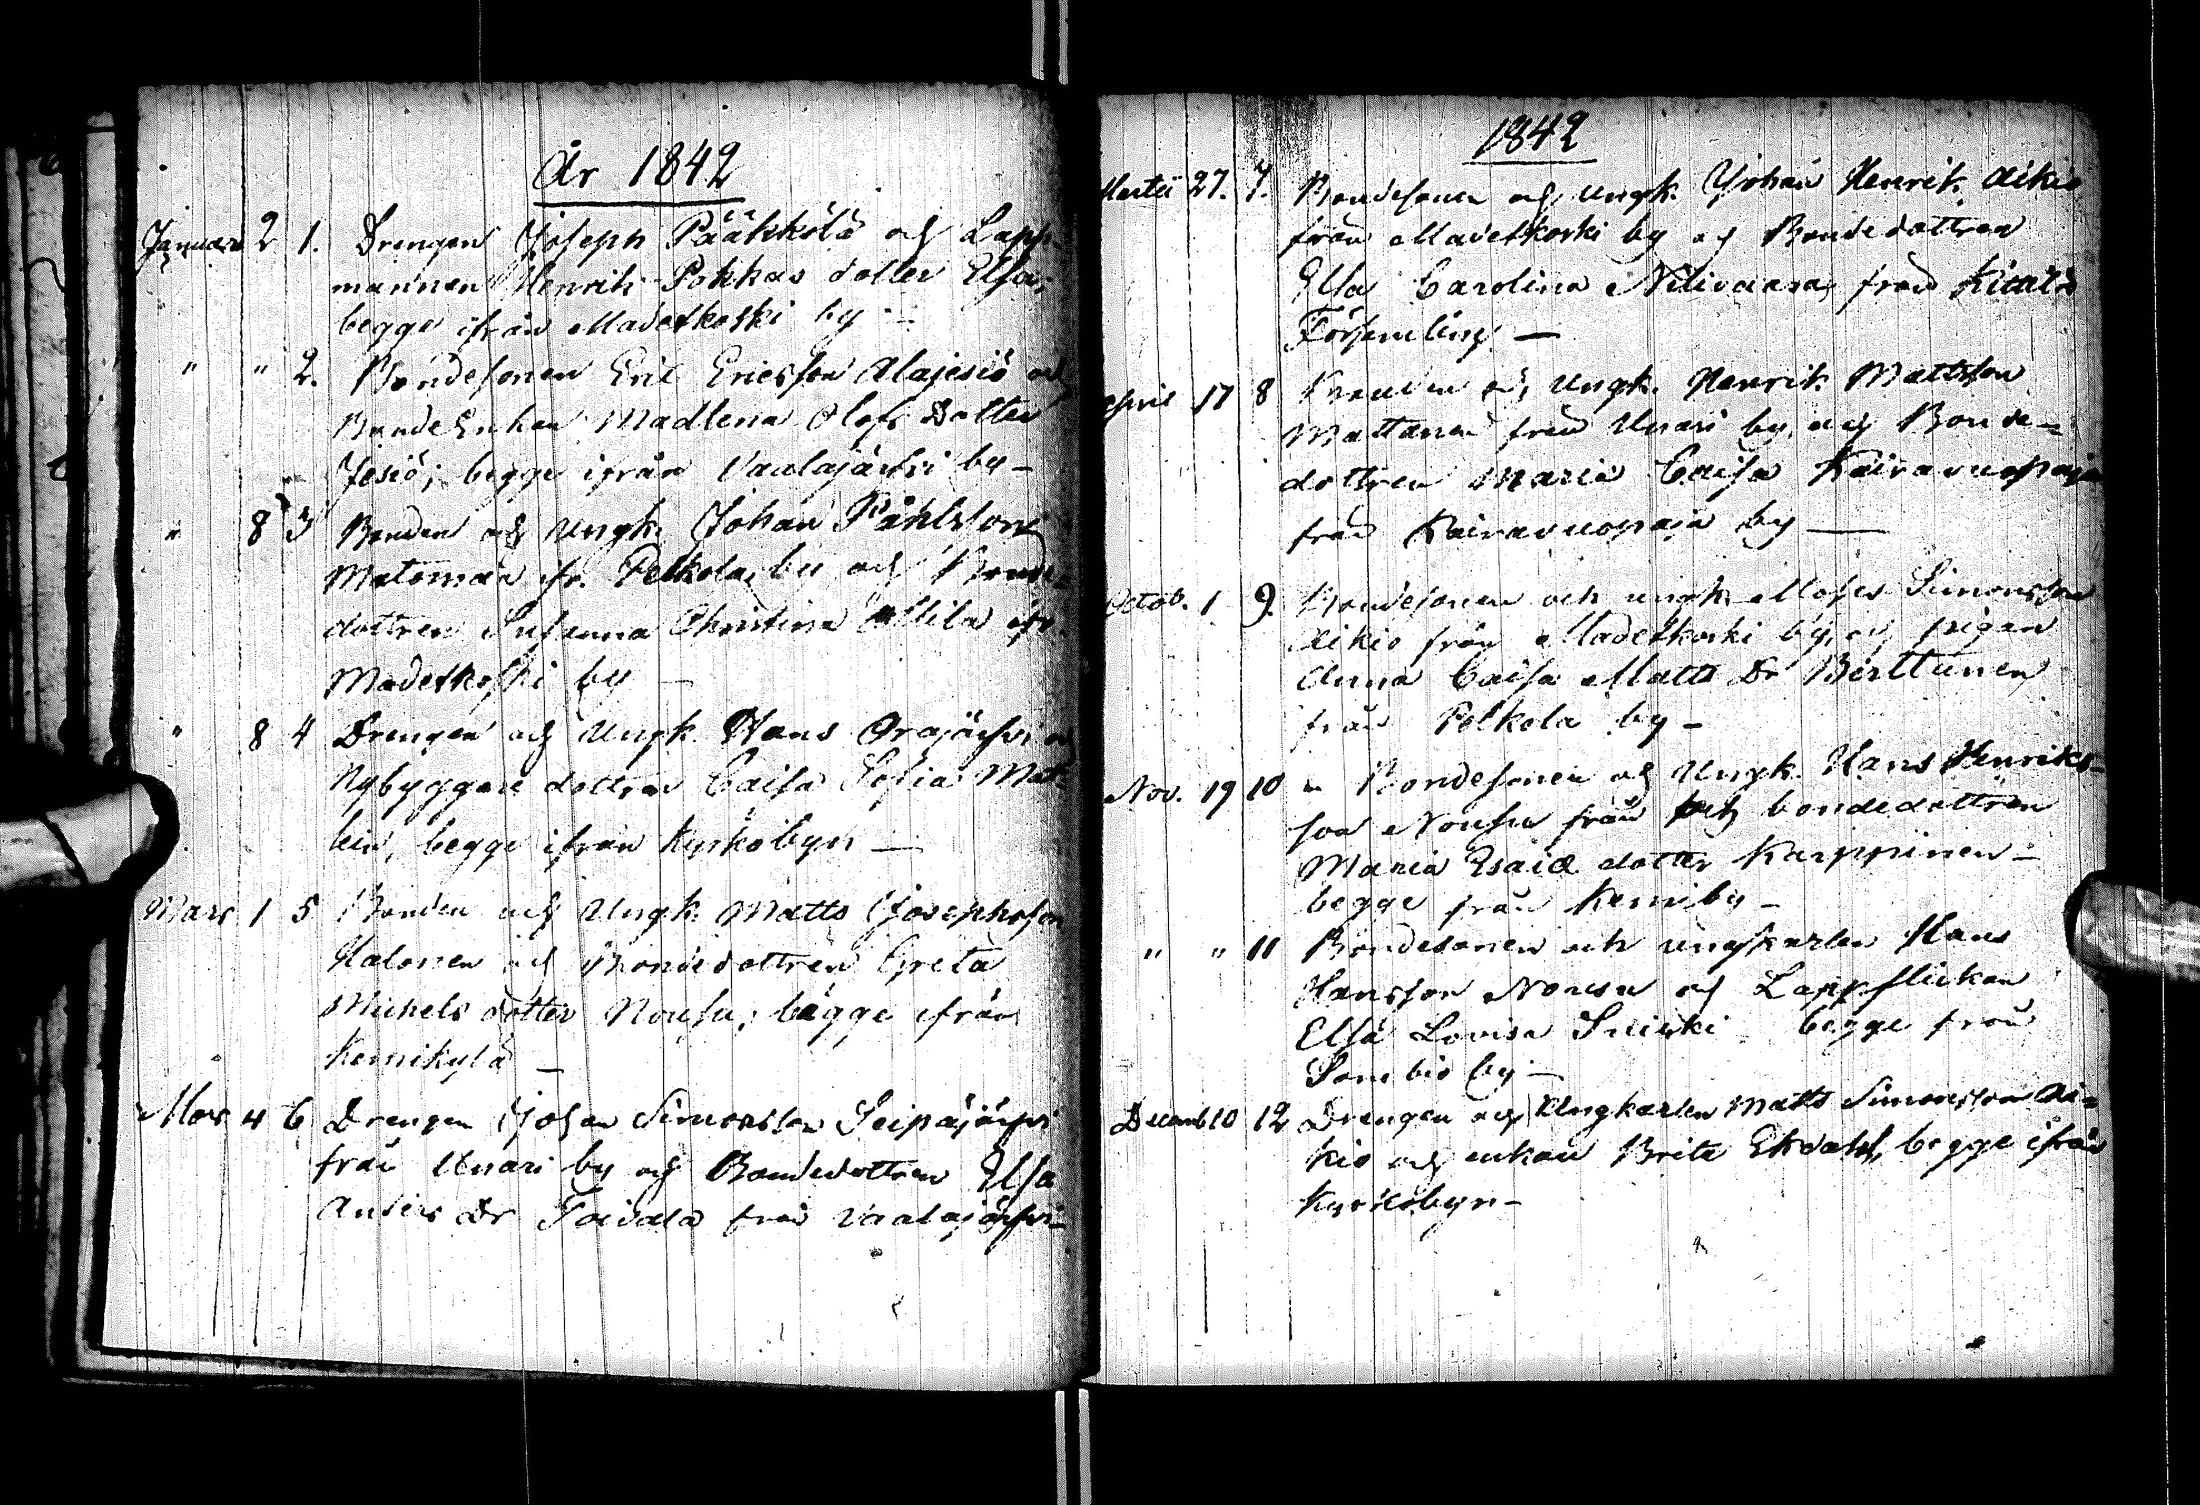 År 1842
Januari 2 1. Drengen Joseph Pääkkölä och Lapp-
mannen Henrik Pokkas dotter Elsa,
begge ifrån Madetkoski by —
" " 2. Bondesonen Eric Ericsson Alajesiö och
BondeEnkan Madlena Olofs Dotter
Jesiö; begge ifrån Vaalajärfvi by —
" 8 3 Bonden och Ungk. Johan Påhlsson
Matoman ifr. Pelkola by och Bonde-
dottren Susanna Christina Attila ifr.
Madetkoski by —
" 8 4 Drengen och Ungk. Hans Orajärfvi och
Nybyggare dottren Caisa Sofia Mat-
lein, begge ifrån Kyrkobyn —
Mars 1 5 Bonden och Ungk. Matts Josephsson
Halonen och Bondedottren Greta
Michels dotter Nousu, begge ifrån
Kemikylä —
Mars 4 6 Drengen Johan Simonsson Seipäjärfvi
från Unari by och Bondedottren Elsa
Anders Dr Toivola från Vaalajärfvi —
1842
Martii 27. 7. Bondesonen och Ungk. Johan Henrik Aikio
från Madetkoski by och Bondedottren
Elsa Carolina Nilivaara, från Kittilä
Församling —
April 17 8 Bonden och Ungk. Henrik Mattsson
Mattanen från Unari by, och Bonde-
dottren Maria Caisa Kairavuopaja
från Kairavuopaja by —
Octob. 1 9. Bondesonen och ungk. Moses Simonsson
Aikio från Madetkoski by, och pigan
Anna Caisa Matts Dr Berttunen
från Pelkola by —
Nov. 19 10 Bondesonen och Ungk. Hans Henriks-
son Nousu från och bondedottren
Maria Esaiæ dotter Karppinen —
begge från Kemiby —
" " 11 Bondesonen och ungkarlen Hans
Hansson Nousu och Lappflickan
Elsa Lovisa Sneiski begge från
Sombio by —
Decemb 10 12 Drengen och Ungkarlen Matts Simonsson Ai-
kio och enkan Brita Ekdahl, begge ifrån
Kyrkobyn —